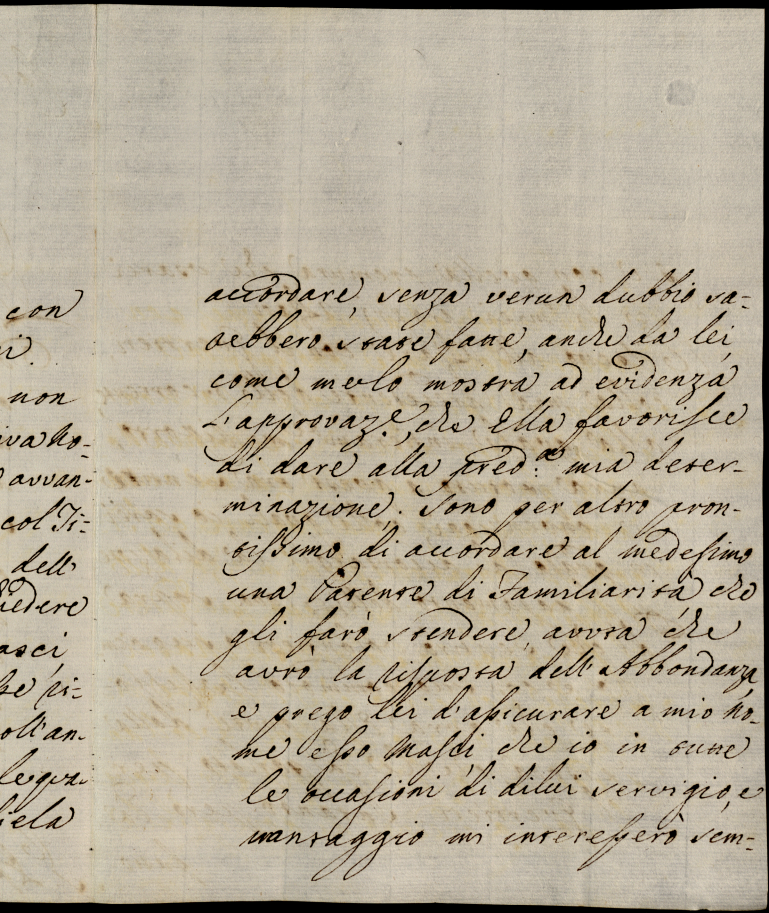 con
non
avvan-
col Ti-
dell'
accordare, senza verun dubbio sa-
rebbero state fatte, anche da lei,
come me lo mostra ad evidenza
l'approvaz.e, che Ella favorisce
di dare alla pred.a mia deter-
minazione. Sono per altro pron-
tissimo di accordare al medesimo
una Patente di Familiarità, che
gli farò stendere, avuta che
avrò la risposta dell'Abbondanza,
e prego lei d'assicurare a mio no-
me esso Masci, che io in tutte
le occasioni di di lui servigio, e
vantaggio mi interesserò sem-